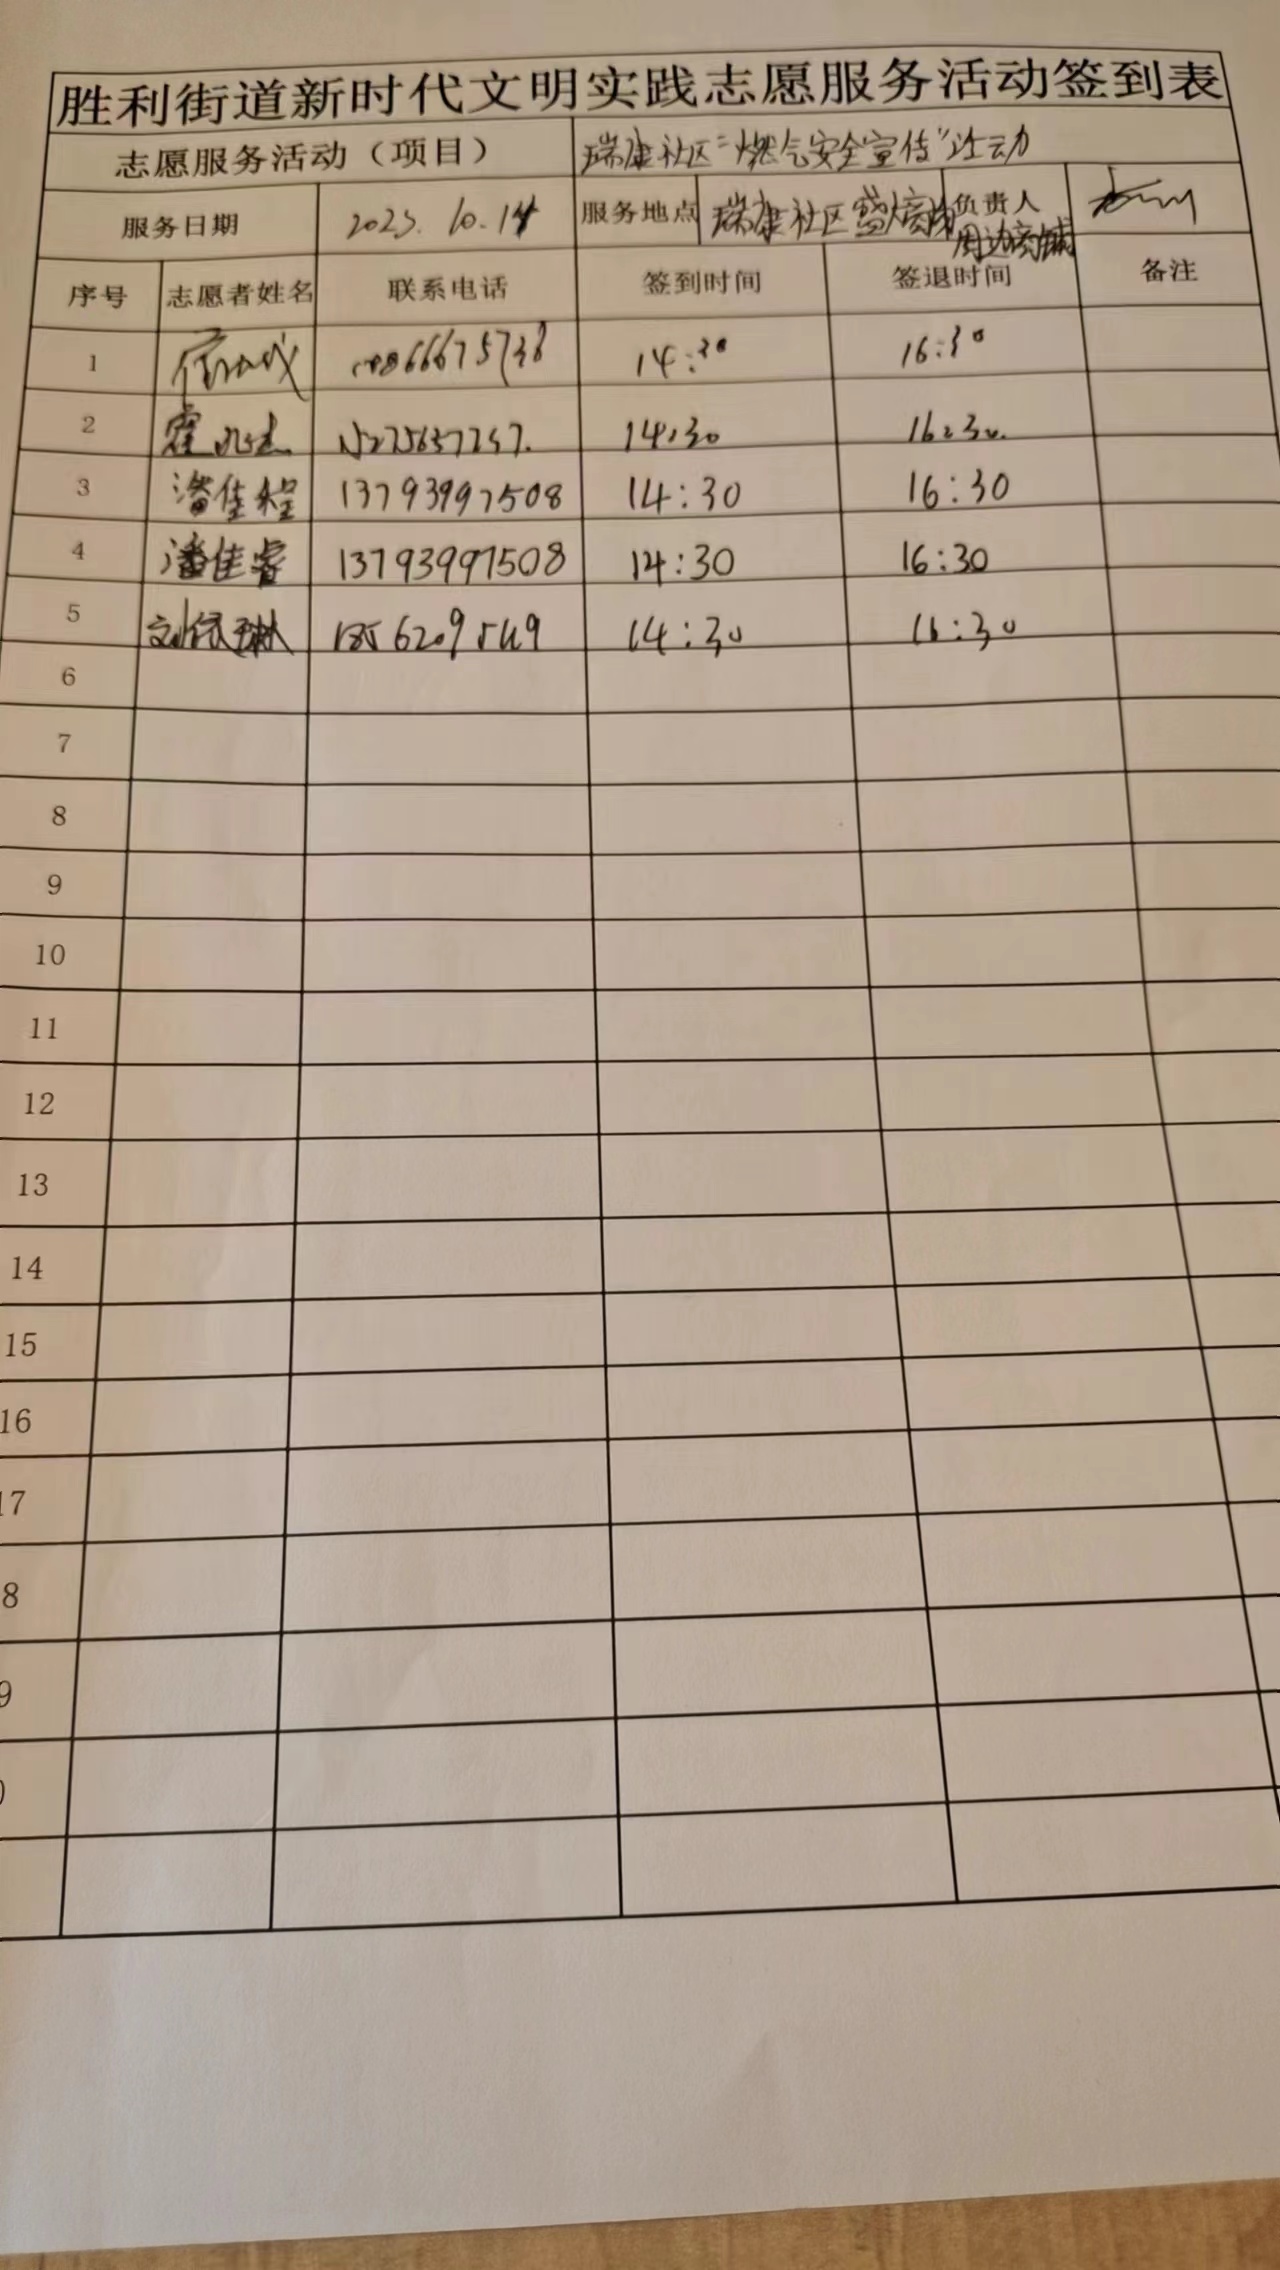 胜利街道新时代文明实践志愿服务活动签到表
志愿服务活动（项目） 瑞康社区“燃气安全宣传”活动
服务日期 2023.10.14 服务地点 瑞康社区 负责人
周边商铺
序号 志愿者姓名 联系电话 签到时间 签退时间 备注
1 14:30 16:30
2 14:30 16:30
3 潘佳程 13793997508 14:30 16:30
4 潘佳睿 13793997508 14:30 16:30
5 刘依琳 14:30 16:30
6
7
8
9
10
11
12
13
14
15
16
17
8
9
0